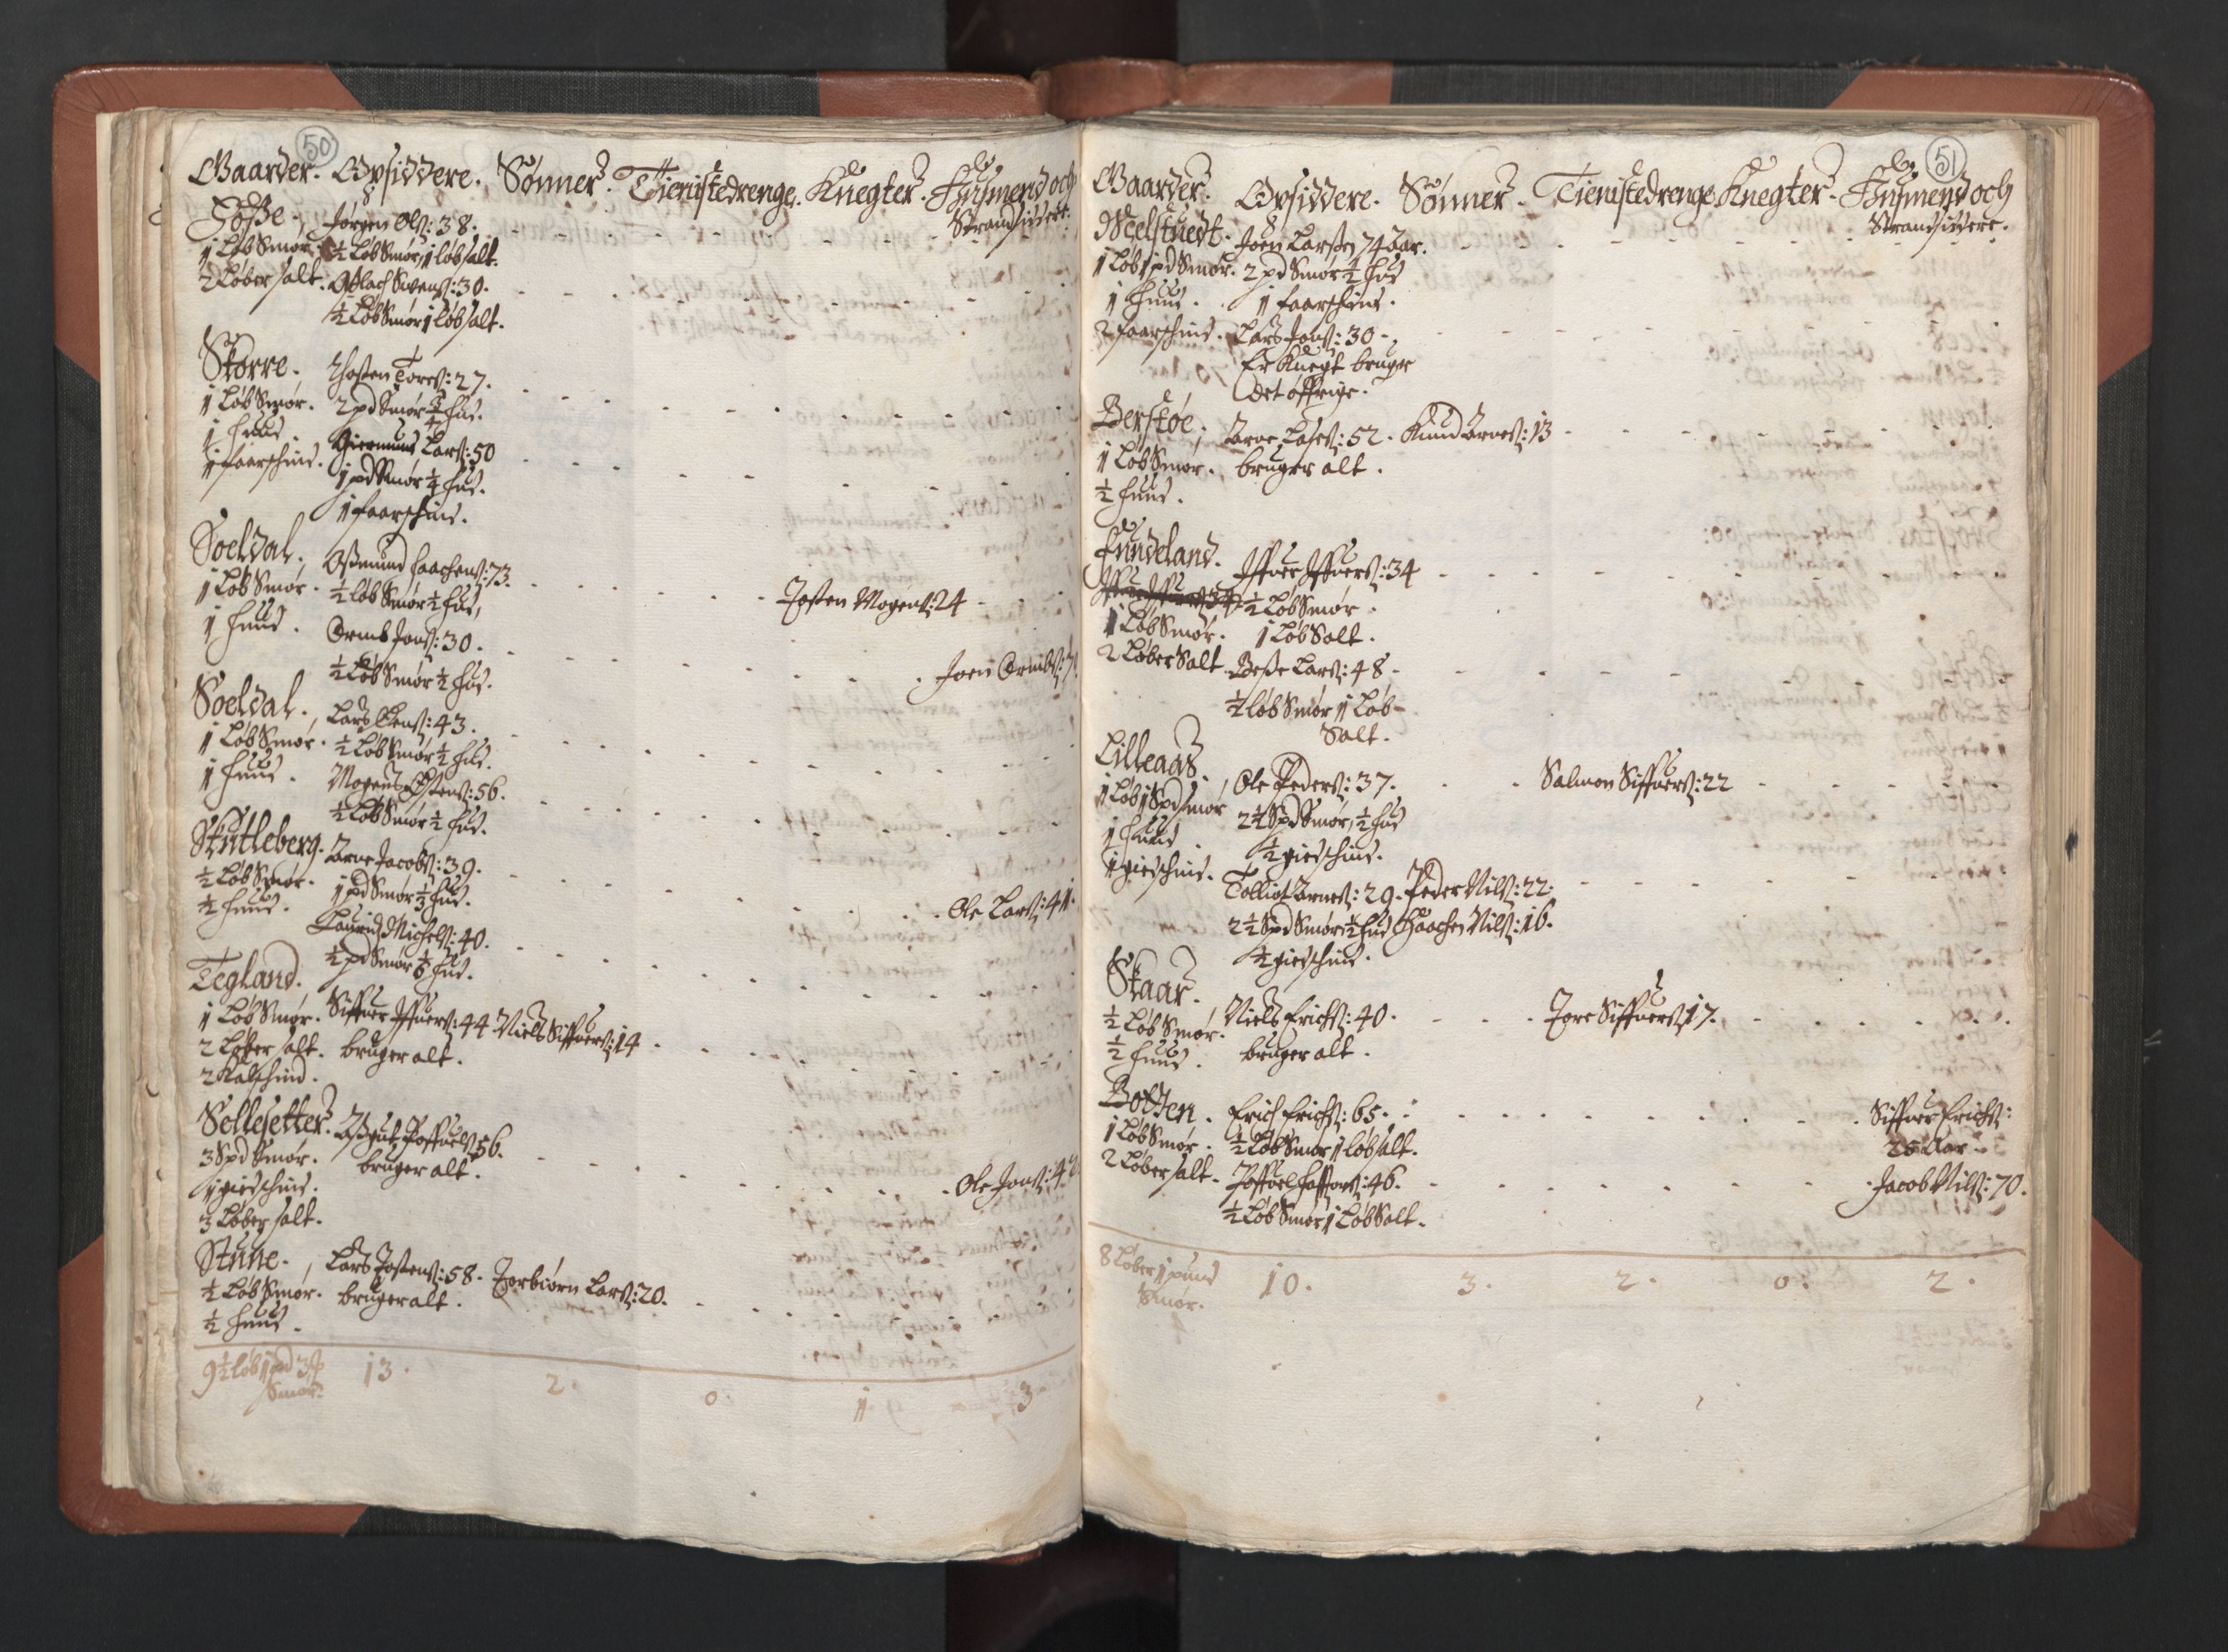 50
Gaarder. Opsiddere. Sønner. Tienistedrenge. Knegter. Husmend och
Strandsiddere.
Jørgen Ols: 38.
1 Løb Smør. ½ Løb Smør, 1 løb salt.
2 Løber salt. Aslach Svens: 30.
½ Løb Smør 1 løb salt.
Skorre. Thosten Tores: 27.
1 Løb Smør. 2 pd Smør ¾ hud.
1 huud. Giermund Lars: 50
1 faarschind. 1 pd Smør ¼ hud.
1 faarschind.
Soeldal, Osmund Haachens: 73.
1 Løb Smør. ½ løb Smør ½ hud,
Josten Mogens: 24
1 huud. Ormb Jons: 30.
½ Løb Smør ½ hud. Joen Ormbs:
Soeldal. Lars Ols: 43.
1 Løb Smør. ½ Løb Smør ½ hud.
1 huud. Mogens Østens: 56.
½ Løb Smør ½ hud.
Skutleberg. Arne Jacobs: 39.
½ Løb Smør. 1 pd Smør ⅓ hud.
½ huud. Ole Lars: 41.
Laurids Michels: 40.
½ pd Smør ⅙ hud.
Tegland.
1 Løb Smør. Siffuer Iffuers: 44 Niels Siffuers: 14
2 Løber salt. bruger alt.
2 Kalschind.
Sellesetter. Poffuels 56.
3 Spd Smør. bruger alt.
1 giedschind. Ole Jons: 4
3 Løber salt.
Stune. Lars Jostens: 58. Torbiørn Lars: 20.
½ Løb Smør. bruger alt.
½ huud.
9½ løb 1 pd 3
Smør. 13. 2. 0. 1 3
51
Gaarder. Opsiddere. Sønner. Tienistedrenge Knegter. Husmend och
Strandsiddere.
Melstuedt. Joen Larsen 74 Aar.
1 Løb 1 pd Smør. 2 pd Smør ½ hud
1 huud. 1 faarschind.
2 faarschind. Lars Jons: 30
Er Knegt bruger
det øffrige.
Berstøe, Arne Lases: 52. Knud Arnes: 13
1 Løb Smør. bruger alt.
½ huud.
Hundeland. Iffuer Iffuers: 34
½ Løb Smør.
1 Løb Smør. 1 Løb Salt.
2 Løber Salt Besse Lars: 48
½ løb Smør 1 Løb
Salt.
Lilleaas. Ole Peders: 37. Salmon Siffuers: 22
1 Løb 1 Spd smør 2½ Spd Smør, ½ hud
1 huud ½ giedschind.
1 giedschind. Tollion Arnes: 29. Peder Nils: 22.
2½ Spd Smør ½ hud Haachen Nils: 16.
½ giedschind.
Skaar. Niels Erichs: 40. Tore Siffuers 17.
½ Løb Smør. bruger alt.
½ huud.
Botten. Erich Erichs: 65. Siffuer Erichs:
1 Løb Smør. ½ Løb Smør 1 løb salt. 26 Aar
2 Løber salt. Poffuel 46. Jacob Nils: 70.
½ Løb Smør 1 Løb Salt.
8 Løber 1 pund
Smør. 10. 3. 2. 0. 2.